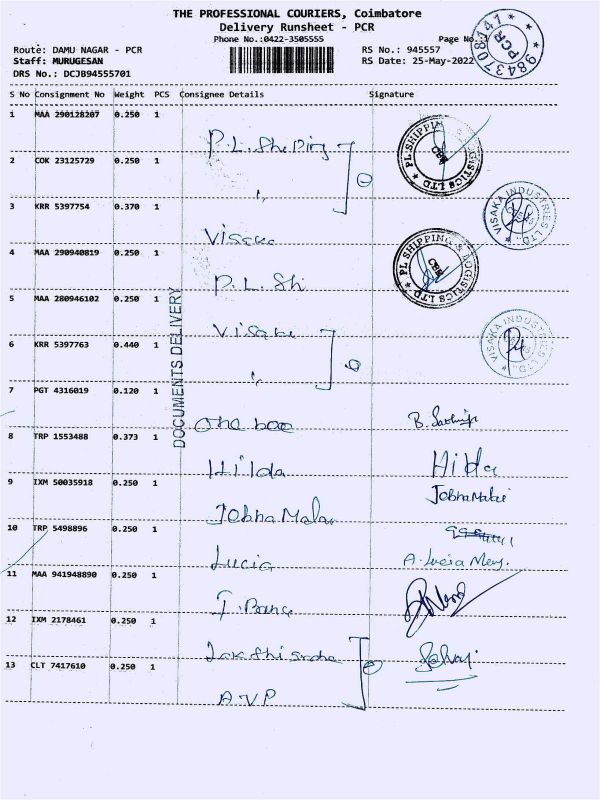 THE PROFESSIONAL COURIERS, Coimbatore
Delivery Runsheet - PCR
Phone No.:0422-3505555
Page No.:1
Route: DAMU NAGAR - PCR
RS No.: 945557
Staff: MURUGESAN
RS Date: 25-May-2022
DRS No.: DCJB94555701
9843708141
PCR
S No Consignment No Weight PCS Consignee Details Signature
1 MAA 290128207 0.250 1 P.L. Sheping
PL SHIPPING & LOGISTICS LTD
CBE
2 COK 23125729 0.250 1 "
3 KRR 5397754 0.370 1 Visaka
VISAKA INDUSTRIES LTD.,
4 MAA 290940819 0.250 1 P.L. Sh
PL SHIPPING & LOGISTICS LTD
CBE
5 MAA 280946102 0.250 1 Visaka
DOCUMENTS DELIVERY
6 KRR 5397763 0.440 1 "
VISAKA INDUSTRIES LTD.,
7 PGT 4316019 0.120 1 One boo
8 TRP 1553488 0.373 1 Hilda Hilda
9 IXM 50035918 0.250 1 Jobha Malar
10 TRP 5498896 0.250 1 Lucia A. Lucia Mery.
11 MAA 941948890 0.250 1
12 IXM 2178461 0.250 1
13 CLT 7417610 0.250 1 A.V.P